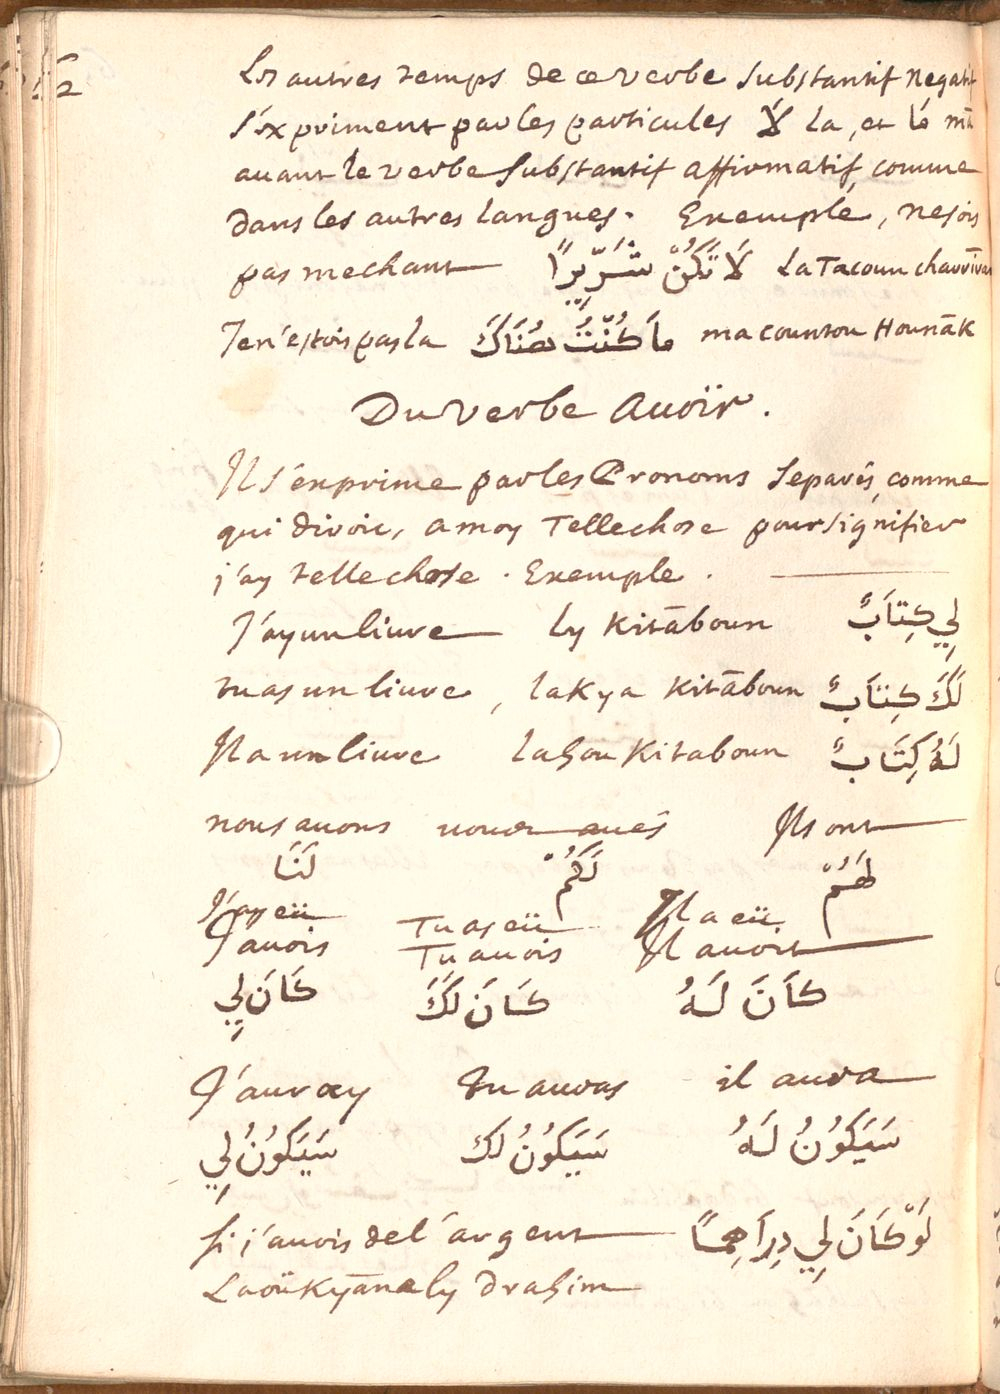 Les autres temps de ce verbe substantif negatif
s'expriment par les particules لَا la, et مَا mā
auant le verbe substantif affirmatif, comme
dans les autres langues. Exemple, ne sois
pas mechant لَا تَكُنْ شَرِّيرًا La Tacoun charrīran
Je n'estois pas la مَا كُنْتُ هُنَاكَ ma countou Hounāk
Du verbe Auoïr.
Il s'exprime par les Pronoms separés, comme
qui diroit, a moy Telle chose pour signifier
j'ay telle chose. Exemple.
J'ay un liure ly Kitāboun لِي كِتَابٌ
tu as un liure, lakya Kitāboun لَكَ كِتَابٌ
Il a un liure lahou Kitaboun لَهُ كِتَابٌ
nous auons vous aués Ils ont
لَنَا لَكُمْ لَهُمْ
J'ay eü Tu as eü Il a eü
J'auois Tu auois Il auoit
كَانَ لِي كَانَ لَكَ كَانَ لَهُ
J'auray tu auras il aura
سَيَكُونُ لِي سَيَكُونُ لَكَ سَيَكُونُ لَهُ
si j'auois de l'argent لَوْ كَانَ لِي دِرَاهِمًا
Laoü Kyāna ly drahim